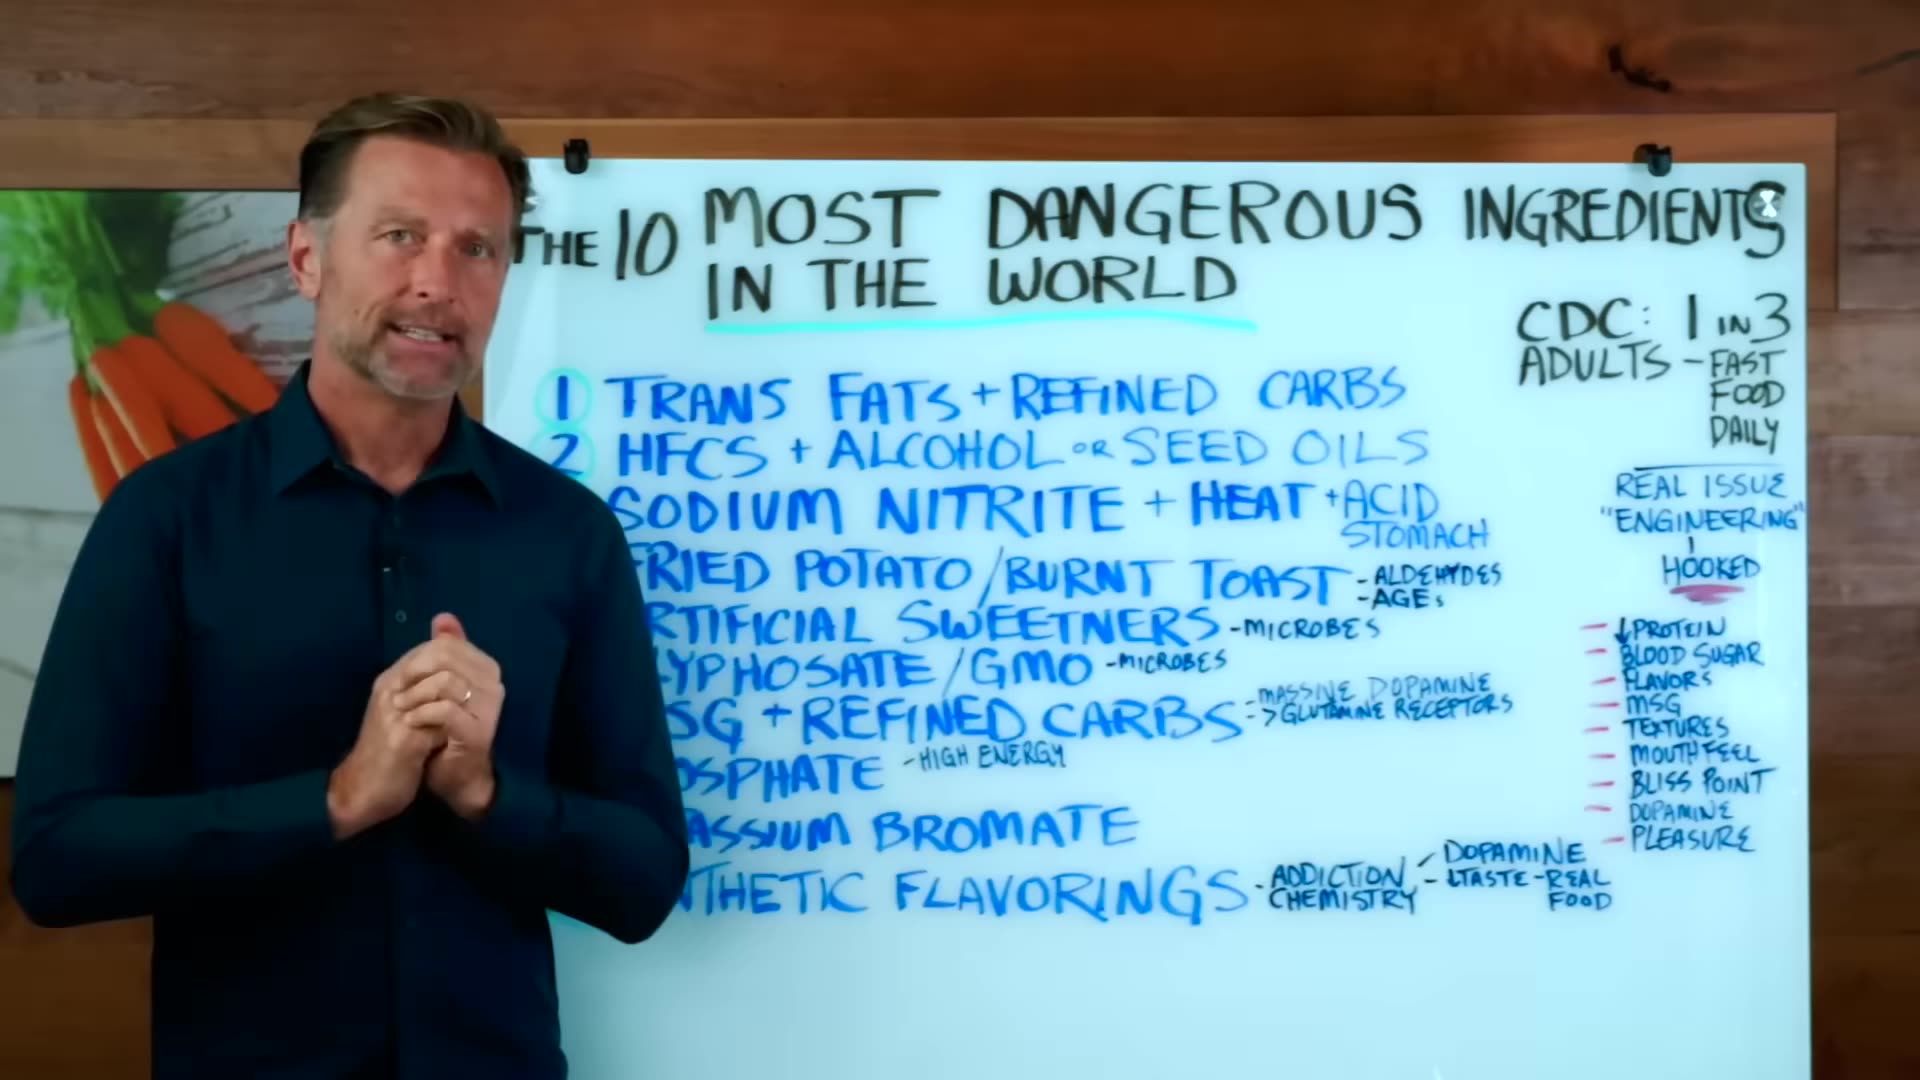 THE 10 MOST DANGEROUS INGREDIENTS
IN THE WORLD
CDC: 1 IN 3
ADULTS - FAST
FOOD
DAILY
1 TRANS FATS + REFINED CARBS
2 HFCS + ALCOHOL OR SEED OILS
SODIUM NITRITE + HEAT + ACID
STOMACH
FRIED POTATO/BURNT TOAST - ALDEHYDES
- AGEs
RTIFICIAL SWEETNERS - MICROBES
LYPHOSATE/GMO - MICROBES
SG + REFINED CARBS - MASSIVE DOPAMINE
-> GLUTAMINE RECEPTORS
OSPHATE - HIGH ENERGY
ASSIUM BROMATE
NTHETIC FLAVORINGS - ADDICTION CHEMISTRY - DOPAMINE
- ↓TASTE - REAL
FOOD
REAL ISSUE
"ENGINEERING"
HOOKED
- ↓PROTEIN
- BLOOD SUGAR
- FLAVORS
- MSG
- TEXTURES
- MOUTHFEEL
- BLISS POINT
- DOPAMINE
- PLEASURE